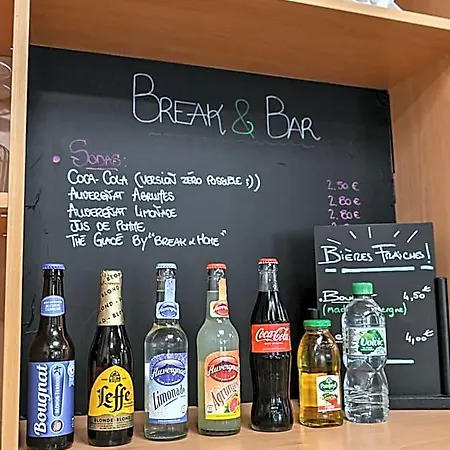 BREAK & BAR
SODAS:
COCA-COLA (VERSION ZÉRO POSSIBLE ;))
AUVERGÑAT AGRUMES
AUVERGÑAT LIMONADE
JUS DE POMME
THÉ GLACÉ BY "BREAK & HOME"
2,50 €
2,80 €
2,80 €
BIÈRES FRAÎCHES!
4,50€
4,00€
Bougnat
Leffe
BLONDE·BLOND
Auvergnat
Limonade
Auvergnat
Agrumes
Coca-Cola
Volvic